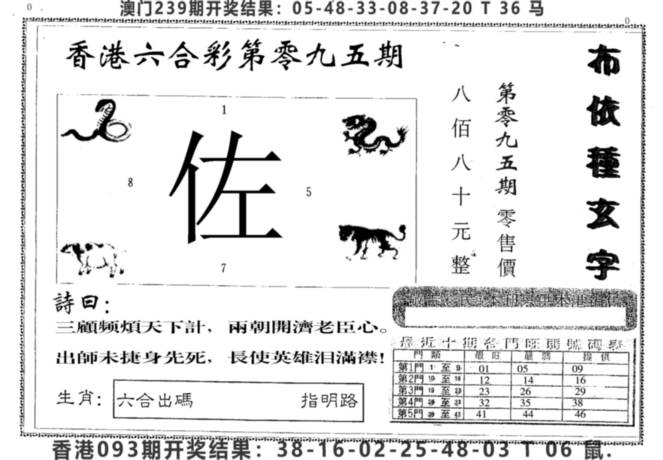 澳门239期开奖结果：05-48-33-08-37-20 T 36 马
0
0
香港六合彩第零九五期
布依種玄字
第零九五期 零售價
八佰八十元整
1
佐
8
5
7
詩曰：
三顧频煩天下計，兩朝開濟老臣心。
出師未捷身先死，長使英雄泪滿襟！
生肖：
六合出碼 指明路
最近十期各門旺開號碼
門類 最旺 提供
第1門 1 至 9 01 05 09
第2門 10 至 18 12 14 16
第3門 至 23 26 29
第4門 至 32 35 38
第5門 至 41 44 46
香港093期开奖结果：38-16-02-25-48-03 T 06 鼠.